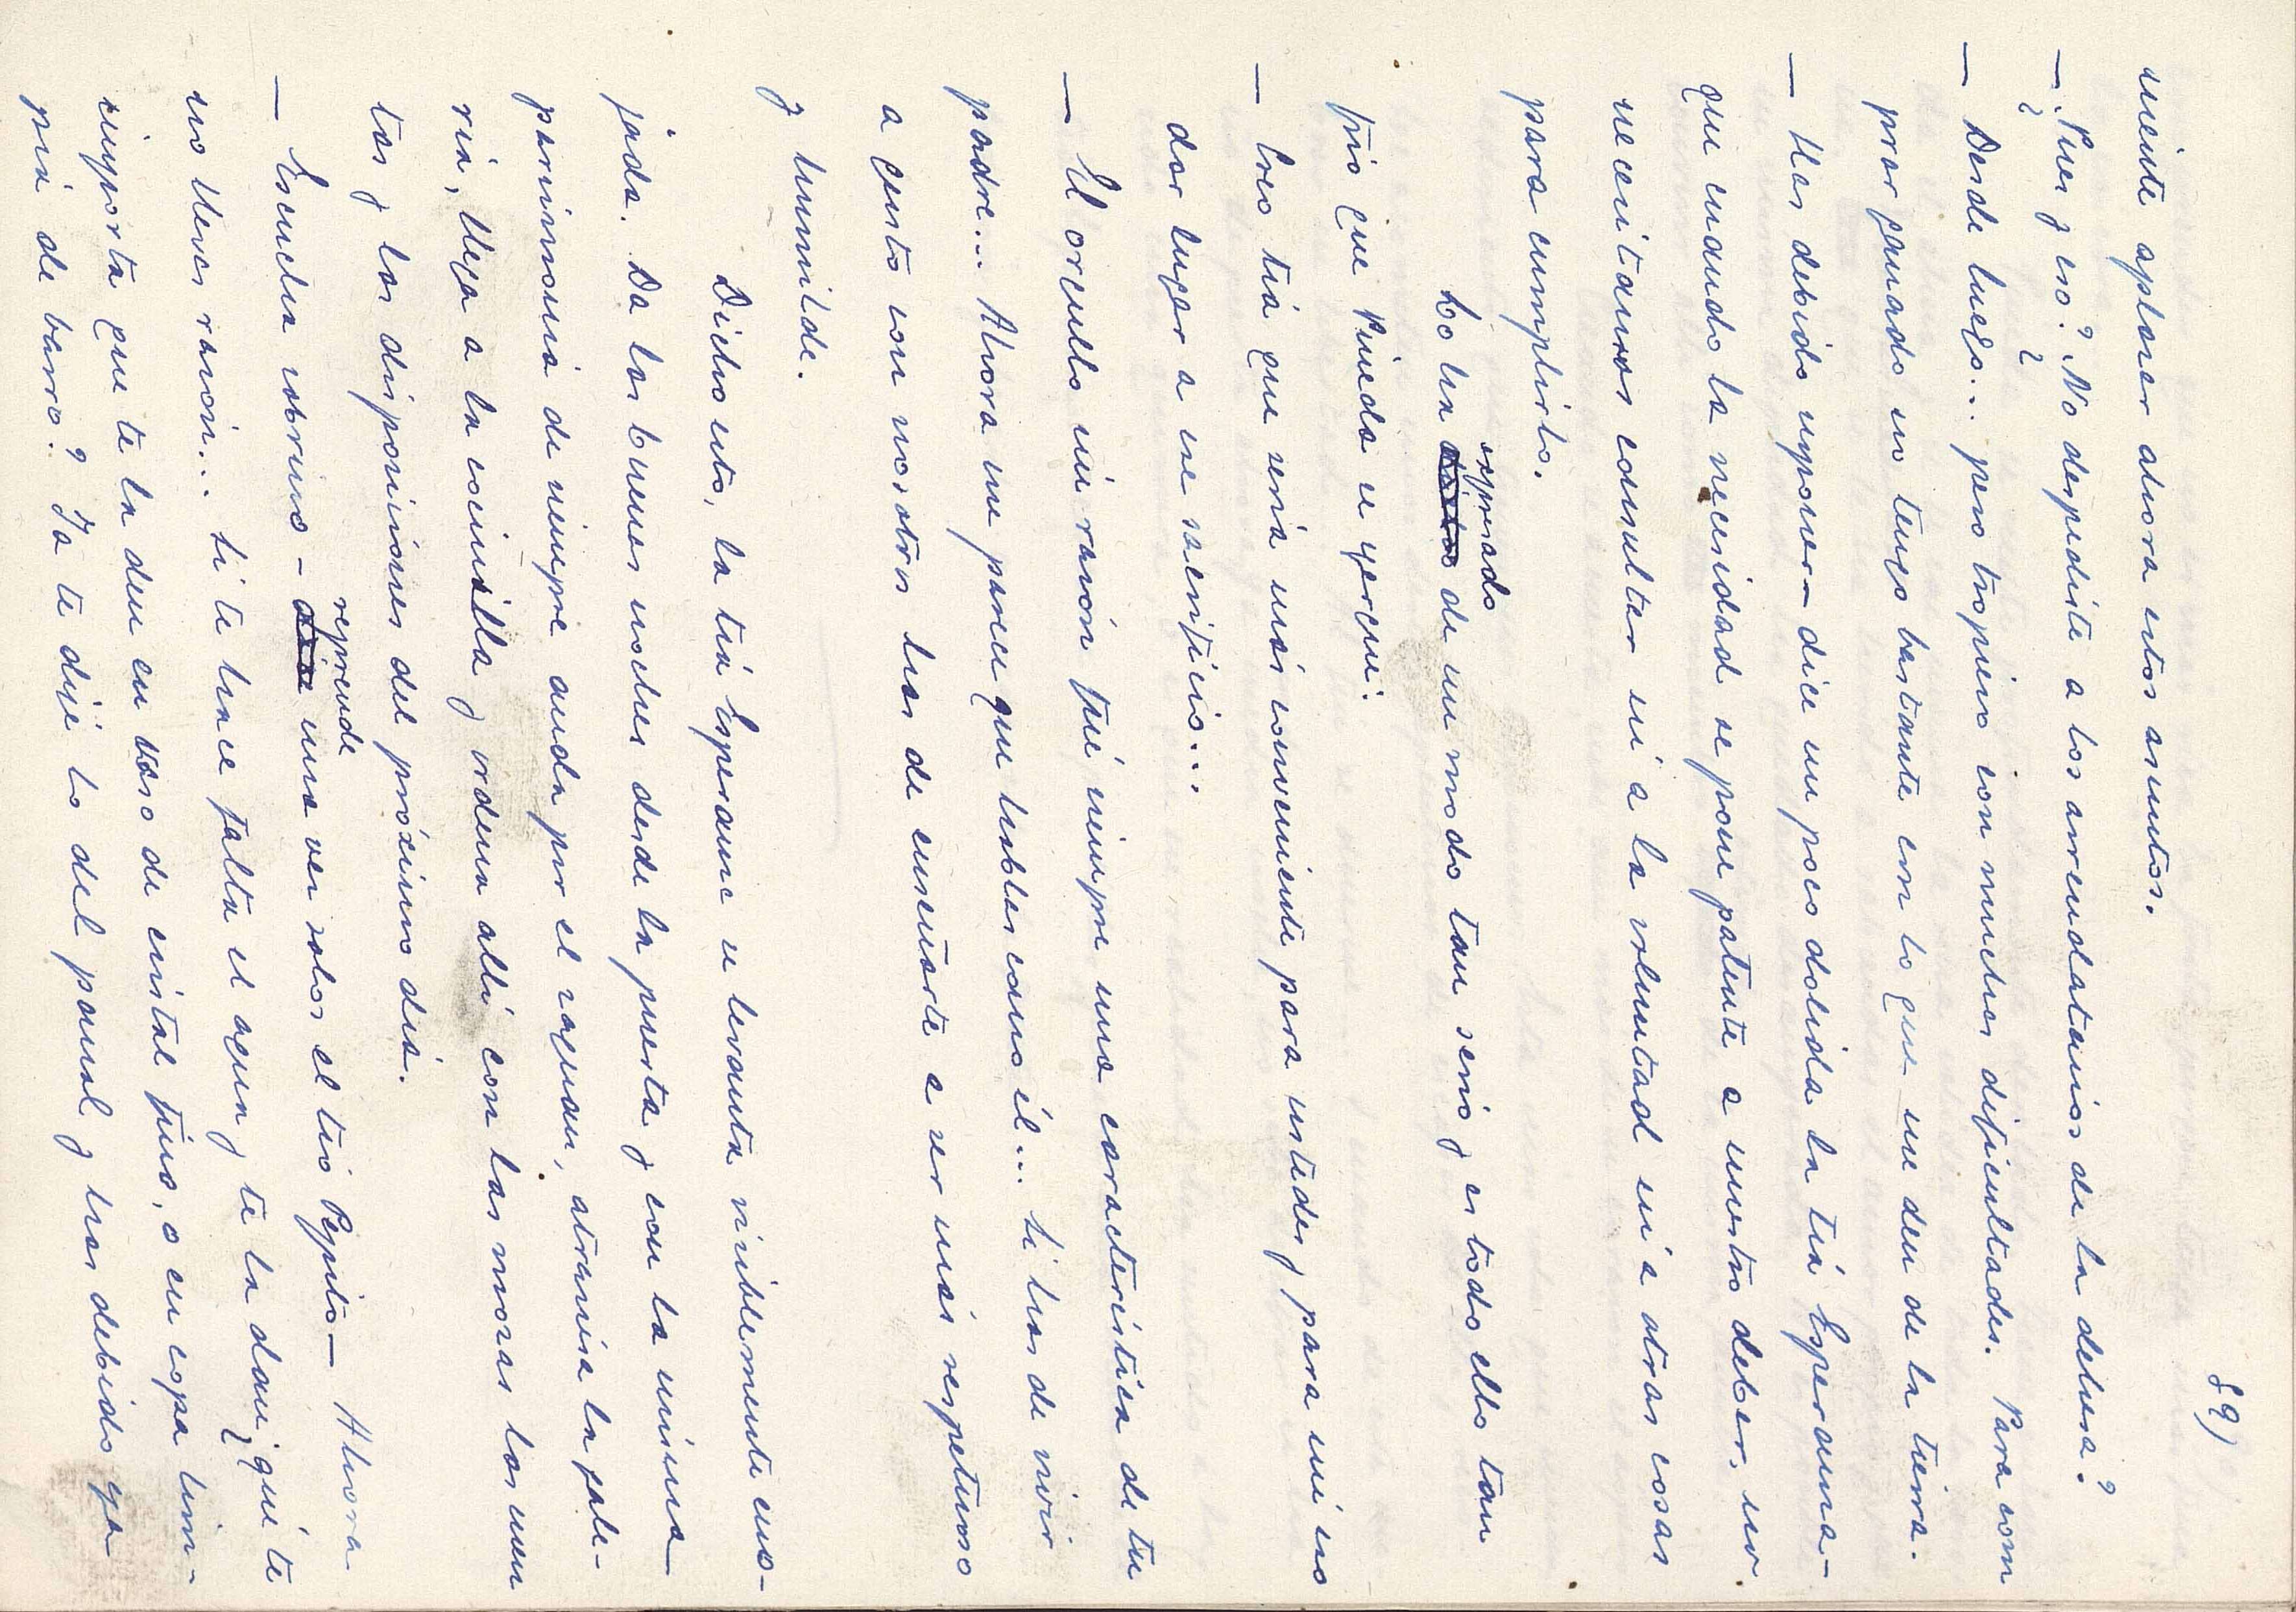 89)
mente aplazar ahora estos asuntos.
— ¿Pues y eso? ¿No despediste a los arrendatarios de la dehesa?
— Desde luego... pero tropiezo con muchas dificultades. Para com
prar ganado no tengo bastante con lo que me den de la tierra.
— Has debido suponer — dice un poco dolida la tía Esperanza —
que cuando la necesidad se pone patente a nuestro deber, no
necesitamos consultar ni a la voluntad ni a otras cosas
para cumplirlo.
expresado
Lo ha dicho de un modo tan serio y es todo ello tan
frío que Pineda se yergue:
— Creo tía que sería más conveniente para ustedes y para mí no
dar lugar a ese sacrificio...
— El orgullo sin razón fué siempre una característica de tu
padre... Ahora me parece que hablas como él... Si has de vivir
a gusto con nosotros has de enseñarte a ser más respetuoso
y humilde.
Dicho esto, la tía Esperanza se levanta visiblemente eno-
jada. Da las buenas noches desde la puerta y con la misma
parsimonia de siempre anda por el zaguan, atraviesa la gale-
ría, llega a la cocinilla y ordena allí con las mozas las cuen
tas y las disposiciones del próximo día.
reprende
— Escucha sobrino — dice una vez solos el tío Pepito — Ahora
no llevas razón... Si te hace falta el agua y te la dan ¿qué te
importa que te la den en vaso de cristal fino, o en copa lim-
pia de barro? Ya te dije lo del panal y has debido ya